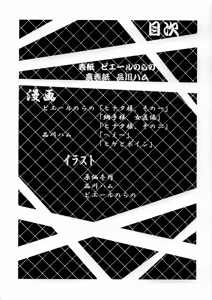 目次
表紙 ピエールのらの
裏表紙 品川ハム
漫画
ピエールのらの 「ヒナタ様、その一」
「綱手様、女医編」
「ヒナタ様、その二」
品川ハム 「へぇ〜」
「ヒゲとボイン」
イラスト
原価壱円
品川ハム
ピエールのらの